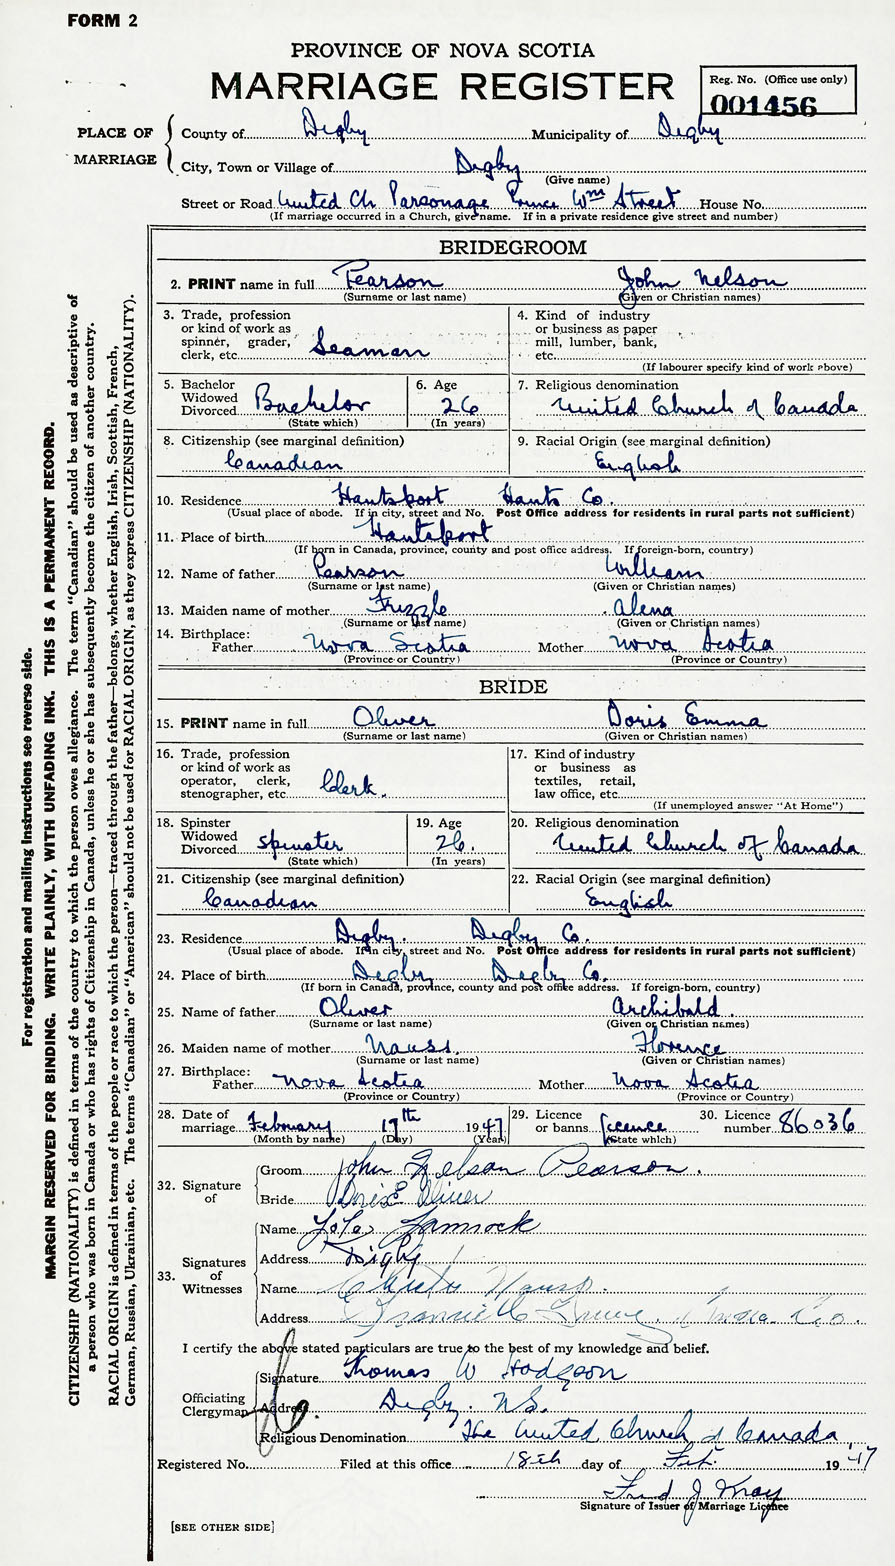 FORM 2
PROVINCE OF NOVA SCOTIA
MARRIAGE REGISTER
Reg. No. (Office use only)
001456
PLACE OF MARRIAGE
County of Digby Municipality of Digby
City, Town or Village of Digby
(Give name)
Street or Road United Ch Parsonage Prince Wm Street House No.
(If marriage occurred in a Church, give name. If in a private residence give street and number)
BRIDEGROOM
2. PRINT name in full Pearson John Nelson
(Surname or last name) (Given or Christian names)
3. Trade, profession or kind of work as spinner, grader, clerk, etc. Seaman
4. Kind of industry or business as paper mill, lumber, bank, etc.
(If labourer specify kind of work above)
5. Bachelor Widowed Divorced Bachelor
(State which)
6. Age 26
(In years)
7. Religious denomination
United Church of Canada
8. Citizenship (see marginal definition)
Canadian
9. Racial Origin (see marginal definition)
English
10. Residence Hantsport Hants Co.
(Usual place of abode. If in city, street and No. Post Office address for residents in rural parts not sufficient)
11. Place of birth Hantsport
(If born in Canada, province, county and post office address. If foreign-born, country)
12. Name of father Pearson William
(Surname or last name) (Given or Christian names)
13. Maiden name of mother Frizzle Alena
(Surname or last name) (Given or Christian names)
14. Birthplace:
Father Nova Scotia Mother Nova Scotia
(Province or Country) (Province or Country)
BRIDE
15. PRINT name in full Oliver Doris Emma
(Surname or last name) (Given or Christian names)
16. Trade, profession or kind of work as operator, clerk, stenographer, etc. Clerk.
17. Kind of industry or business as textiles, retail, law office, etc.
(If unemployed answer "At Home")
18. Spinster Widowed Divorced Spinster
(State which)
19. Age 26.
(In years)
20. Religious denomination
United Church of Canada
21. Citizenship (see marginal definition)
Canadian
22. Racial Origin (see marginal definition)
English
23. Residence Digby. Digby Co.
(Usual place of abode. If in city, street and No. Post Office address for residents in rural parts not sufficient)
24. Place of birth Digby Digby Co.
(If born in Canada, province, county and post office address. If foreign-born, country)
25. Name of father Oliver Archibald.
(Surname or last name) (Given or Christian names)
26. Maiden name of mother Nauss. Florence
(Surname or last name) (Given or Christian names)
27. Birthplace:
Father Nova Scotia Mother Nova Scotia
(Province or Country) (Province or Country)
28. Date of marriage February 17th 1947
(Month by name) (Day) (Year)
29. Licence or banns licence
(State which)
30. Licence number 86036
32. Signature of
Groom John Nelson Pearson.
Bride Doris E Oliver
33. Signatures of Witnesses
Name
Address Digby
Name
Address
I certify the above stated particulars are true to the best of my knowledge and belief.
Officiating Clergyman
Signature Thomas W Hodgson
Address Digby. N.S.
Religious Denomination The United Church of Canada
Registered No. Filed at this office 18th day of Feb. 19 47
Fred J
Signature of Issuer of Marriage Licence
[SEE OTHER SIDE]
For registration and mailing instructions see reverse side.
MARGIN RESERVED FOR BINDING. WRITE PLAINLY, WITH UNFADING INK. THIS IS A PERMANENT RECORD.
CITIZENSHIP (NATIONALITY) is defined in terms of the country to which the person owes allegiance. The term "Canadian" should be used as descriptive of
a person who was born in Canada or who has rights of Citizenship in Canada, unless he or she has subsequently become the citizen of another country.
RACIAL ORIGIN is defined in terms of the people or race to which the person—traced through the father—belongs, whether English, Irish, Scottish, French,
German, Russian, Ukrainian, etc. The terms "Canadian" or "American" should not be used for RACIAL ORIGIN, as they express CITIZENSHIP (NATIONALITY).